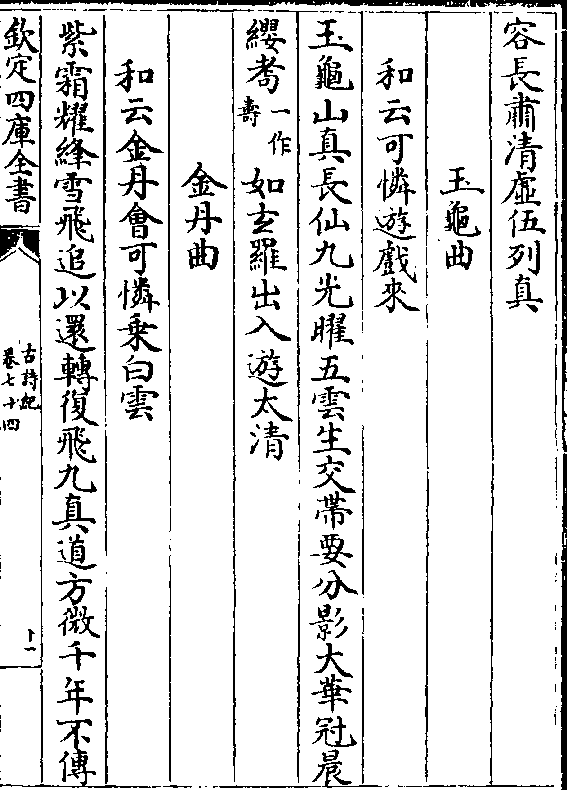 容長肅清虛伍列真
玉龜曲
和云可憐遊戲來
玉龜山真長仙九光曜五雲生交帶要分影大華冠晨
纓耉一作壽如玄羅出入遊太清
金丹曲
和云金丹會可憐乗白雲
紫霜耀絳雪飛追以還轉復飛九真道方微千年不傳
欽定四庫全書
古詩紀
卷七十四
十一